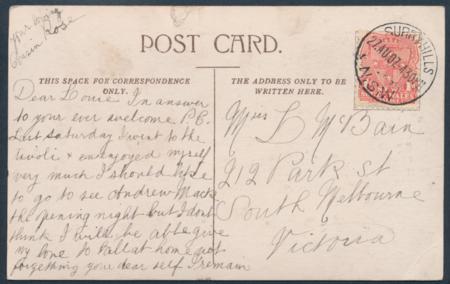 your loving
Cousin Rose
POST CARD.
THIS SPACE FOR CORRESPONDENCE
ONLY.
THE ADDRESS ONLY TO BE
WRITTEN HERE.
SURRY HILLS
27 AU 07
N.S.W
Dear Louie In answer
to your ever welcome P.C.
Last Saturday I went to the
tivoli & enjoyed myself
very much I should like
to go to see Andrew Mack
the opening night but I dont
think I will be able give
my love to all at home not
forgetting your dear self I remain
Miss L McBain
212 Park St
South Melbourne
Victoria